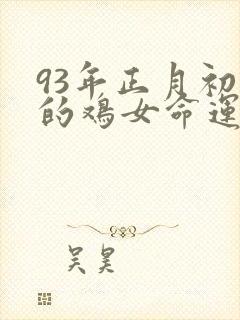 93年正月初
的鸡女命运
吴昊